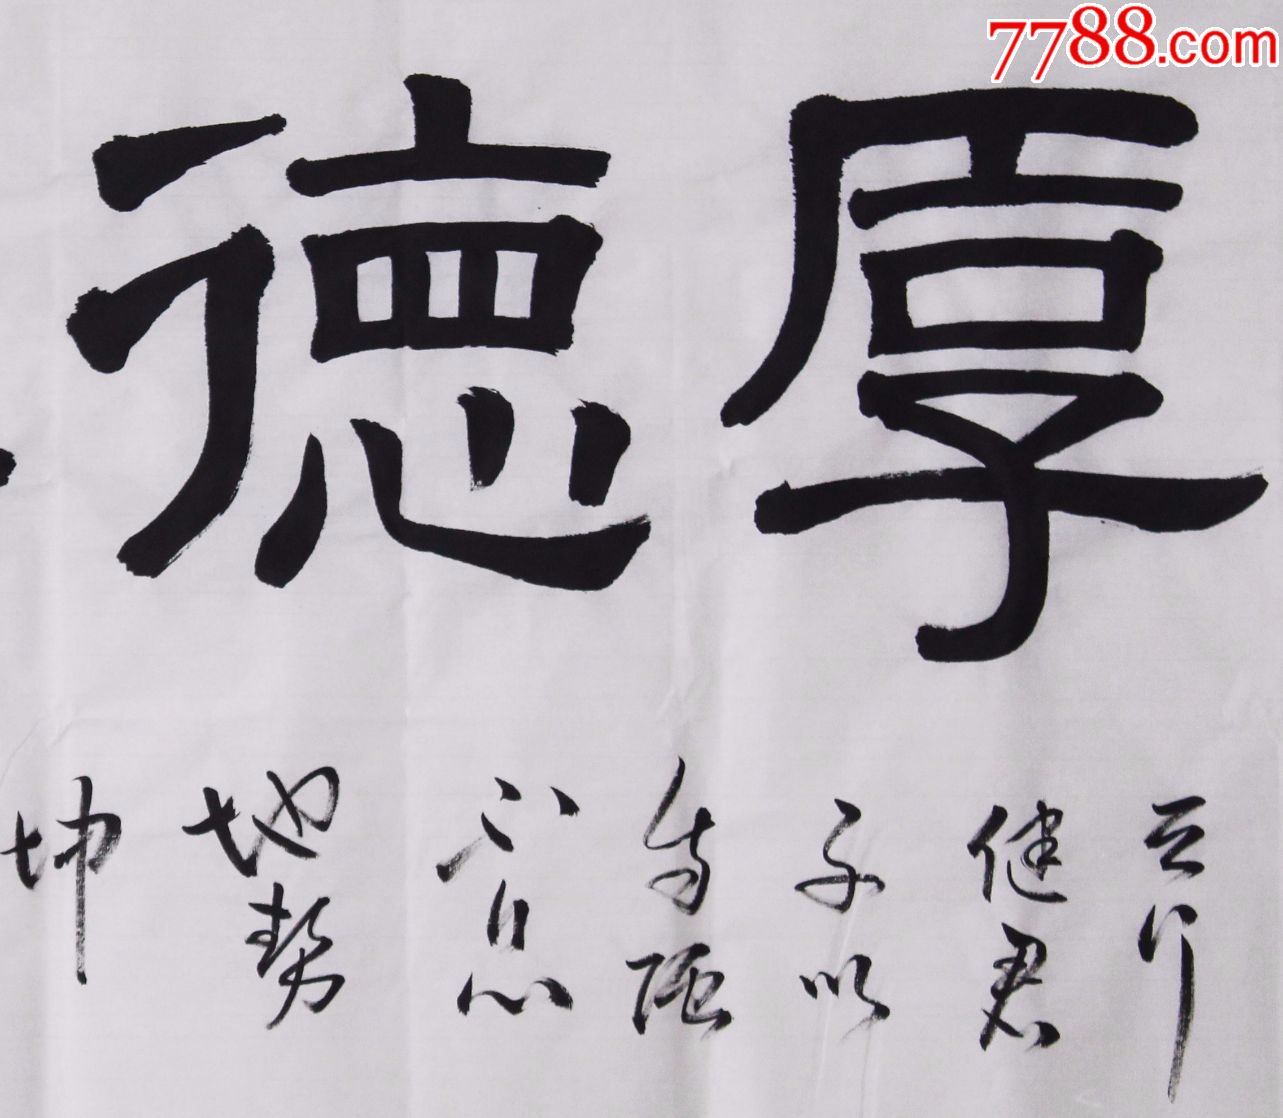 7788.com
厚德
行
健君
子以
自强
不息
地势
坤